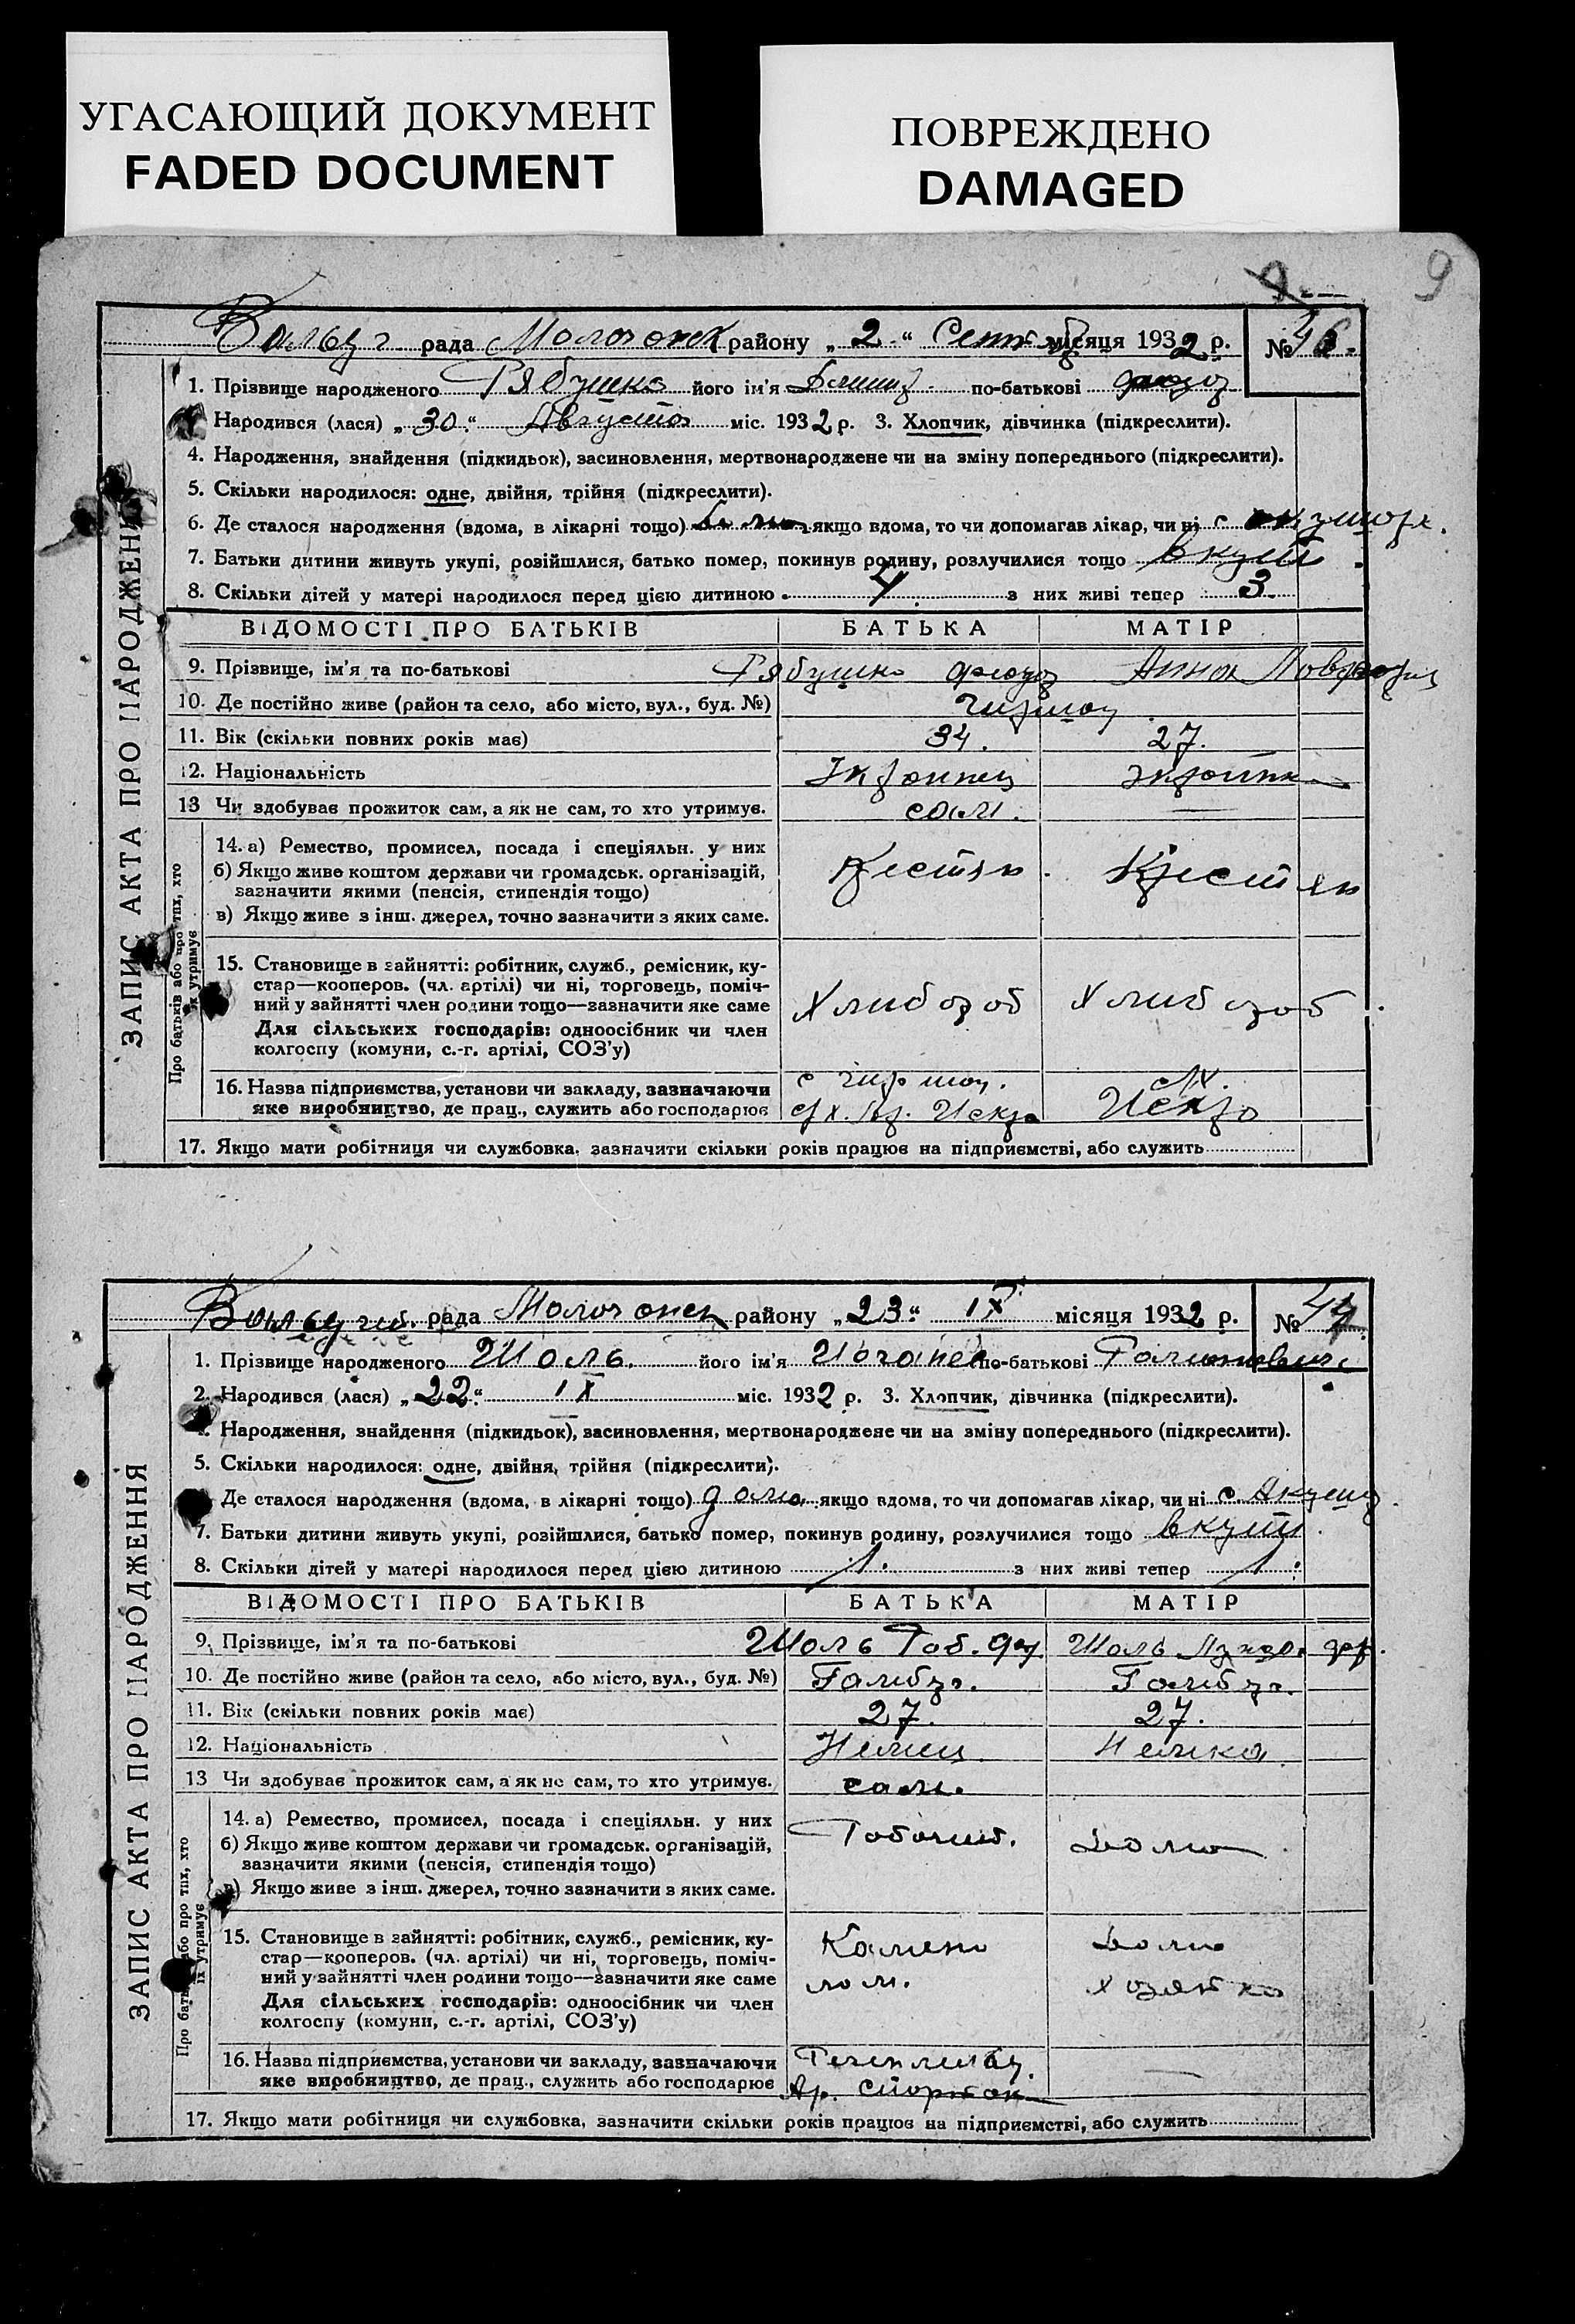 УГАСАЮЩИЙ ДОКУМЕНТ
FADED DOCUMENT
ПОВРЕЖДЕНО
DAMAGED
9
9
рада Молочанск району „2“ місяця 1932 р. № 46.
1. Прізвище народженого Рябушко його ім'я по-батькові
Народився (лася) „30.“ Августа міс. 1932 р. 3. Хлопчик, дівчинка (підкреслити).
4. Народження, знайдення (підкидьок), засиновлення, мертвонароджене чи на зміну попереднього (підкреслити).
5. Скільки народилося: одне, двійня, трійня (підкреслити).
6. Де сталося народження (вдома, в лікарні тощо) якщо вдома, то чи допомагав лікар, чи ні с
7. Батьки дитини живуть укупі, розійшлися, батько помер, покинув родину, розлучилися тощо вкупі.
8. Скільки дітей у матері народилося перед цією дитиною 4. з них живі тепер 3.
ВІДОМОСТІ ПРО БАТЬКІВ БАТЬКА МАТІР
9. Прізвище, ім'я та по-батькові Рябушко Анна
10. Де постійно живе (район та село, або місто, вул., буд. №)
11. Вік (скільки повних років має) 34. 27.
12. Національність
13 Чи здобував прожиток сам, а як не сам, то хто утримує. сам.
ЗАПИС АКТА ПРО НАРОДЖЕН
Про батьків або про тих, хто
їх утримує
14. а) Ремество, промисел, посада і спеціяльн. у них
б) Якщо живе коштом держави чи громадськ. організацій,
зазначити якими (пенсія, стипендія тощо)
в) Якщо живе з інш. джерел, точно зазначити з яких саме.
Крестян Крестян
15. Становище в зайнятті: робітник, служб., ремісник, ку-
стар—кооперов. (чл. артілі) чи ні, торговець, поміч-
ний у зайнятті член родини тощо—зазначити яке саме
Для сільських господарів: одноосібник чи член
колгоспу (комуни, с.-г. артілі, СОЗ'у)
Хлибороб Хлибороб
16. Назва підприємства, установи чи закладу, зазначаючи
яке виробництво, де прац., служить або господарює
Искра Искра
17. Якщо мати робітниця чи службовка, зазначити скільки років працює на підприємстві, або служить
рада Молочанск району „23“ IX місяця 1932 р. № 47.
1. Прізвище народженого Шоль його ім'я Иоганес по-батькові
2. Народився (лася) „22“ IX міс. 1932 р. 3. Хлопчик, дівчинка (підкреслити).
4. Народження, знайдення (підкидьок), засиновлення, мертвонароджене чи на зміну попереднього (підкреслити).
5. Скільки народилося: одне, двійня, трійня (підкреслити).
Де сталося народження (вдома, в лікарні тощо) дома якщо вдома, то чи допомагав лікар, чи ні с Акушер.
7. Батьки дитини живуть укупі, розійшлися, батько помер, покинув родину, розлучилися тощо вкупі.
8. Скільки дітей у матері народилося перед цією дитиною 1. з них живі тепер 1.
ВІДОМОСТІ ПРО БАТЬКІВ БАТЬКА МАТІР
9. Прізвище, ім'я та по-батькові Шоль Шоль
10. Де постійно живе (район та село, або місто, вул., буд. №)
11. Вік (скільки повних років має) 27. 27.
12. Національність Немец Немка
13 Чи здобував прожиток сам, а як не сам, то хто утримує. сам.
ЗАПИС АКТА ПРО НАРОДЖЕННЯ
Про бать або про тих, хто
їх утримує
14. а) Ремество, промисел, посада і спеціяльн. у них
б) Якщо живе коштом держави чи громадськ. організацій,
зазначити якими (пенсія, стипендія тощо)
в) Якщо живе з інш. джерел, точно зазначити з яких саме.
Рабочий. Дома
15. Становище в зайнятті: робітник, служб., ремісник, ку-
стар—кооперов. (чл. артілі) чи ні, торговець, поміч-
ний у зайнятті член родини тощо—зазначити яке саме
Для сільських господарів: одноосібник чи член
колгоспу (комуни, с.-г. артілі, СОЗ'у)
Камено Домо
лом. хозяйка
16. Назва підприємства, установи чи закладу, зазначаючи
яке виробництво, де прац., служить або господарює
17. Якщо мати робітниця чи службовка, зазначити скільки років працює на підприємстві, або служить